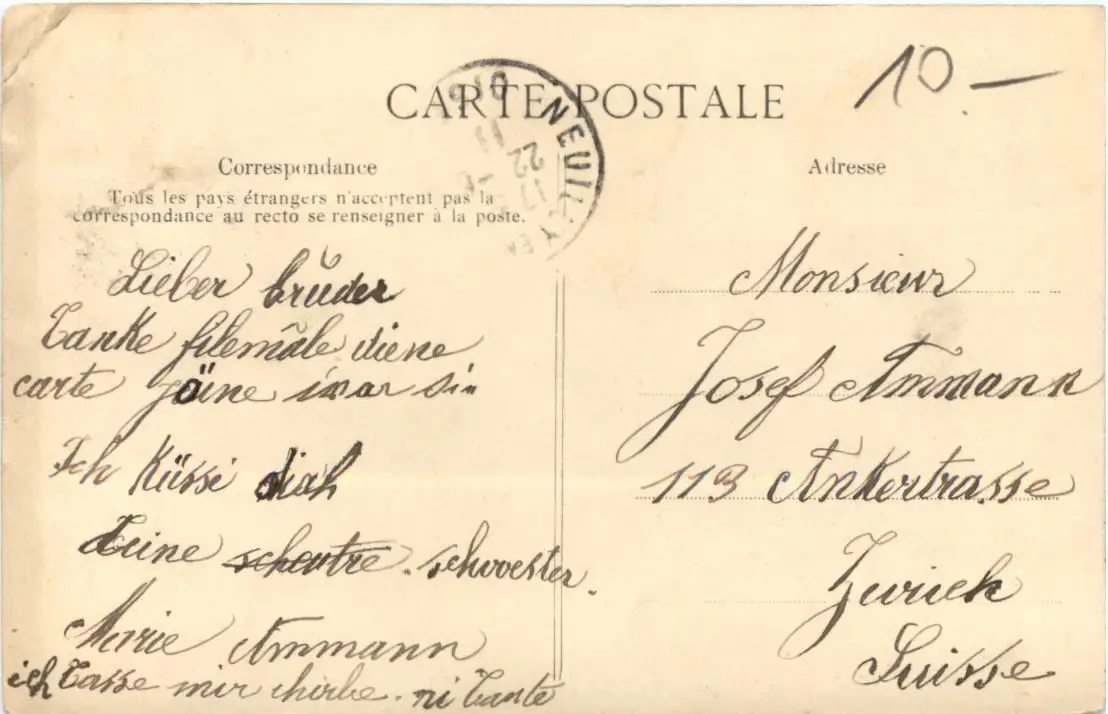 CARTE POSTALE
10.—
NEUILLY
22
17
Correspondance
Adresse
Tous les pays étrangers n'acceptent pas la
correspondance au recto se renseigner à la poste.
Lieber bruder
Tanke filemale diene
carte
Ich Küssi dich
Teine schwester.
Marie Ammann
ich Tasse mir
Monsieur
Josef Ammann
113 Ankertrasse
Zurich
Suisse